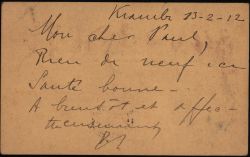 Kramba 13-2-12
Mon cher Paul,
Rien de neuf ici
Santé bonne -
A bientôt et affec-
tueusement